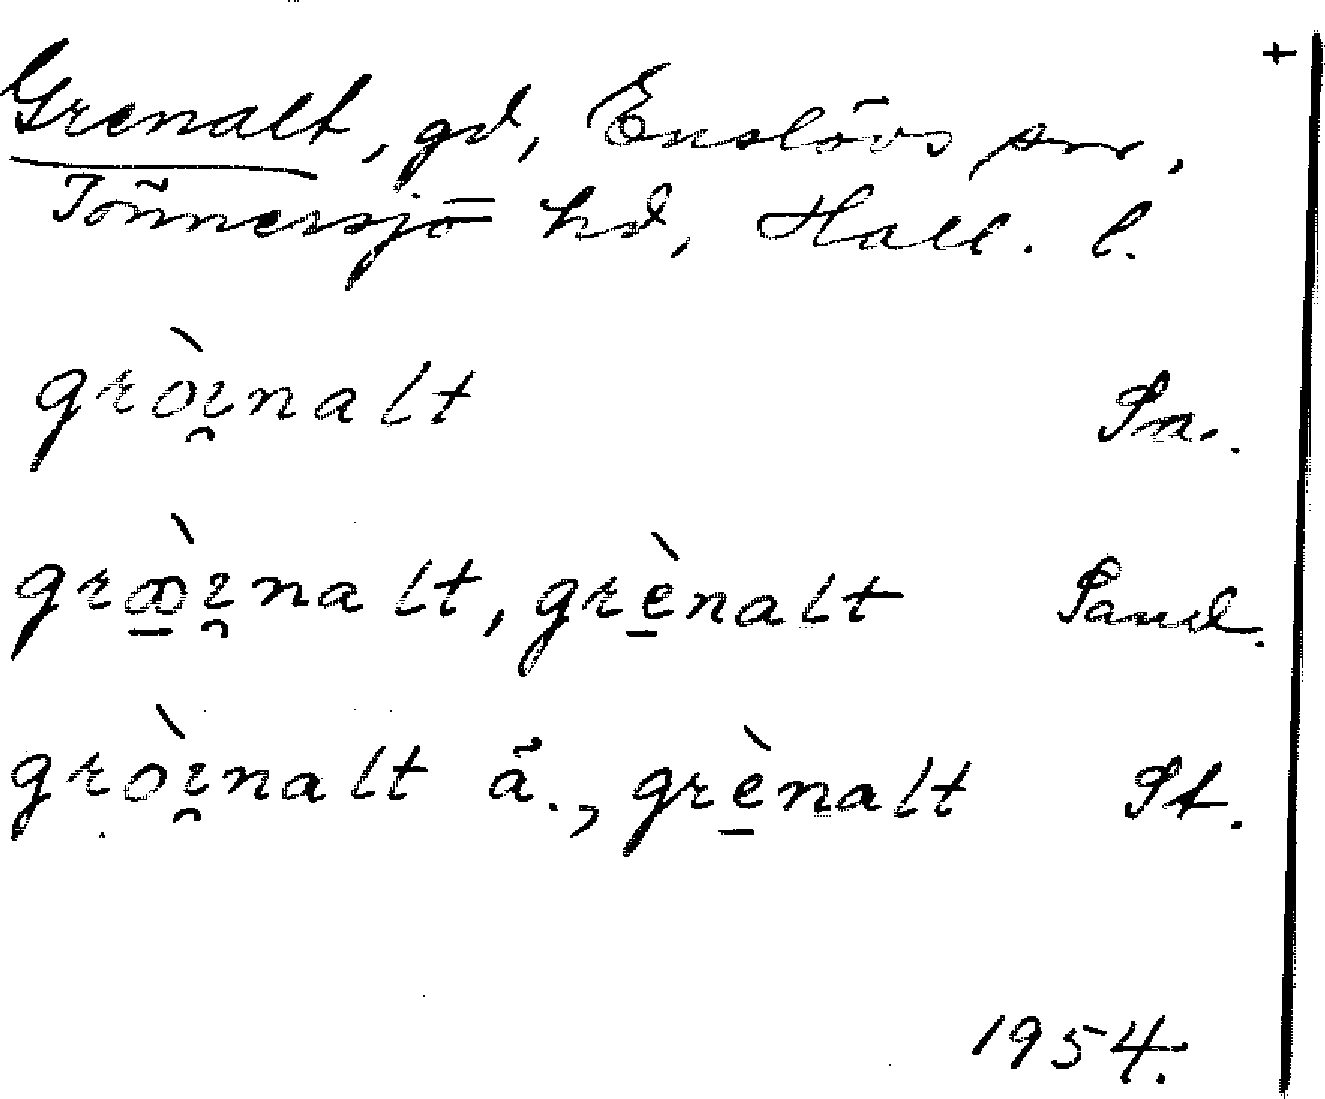 +
Grenalt, gd, Enslövs sn,
Tönnersjö hd, Hall. l.
grò̯ınalt Sn.
græ̱̀ı̯nalt, grè̱nalt Sand.
gròı̯nalt ä., grè̱nalt St.
1954.